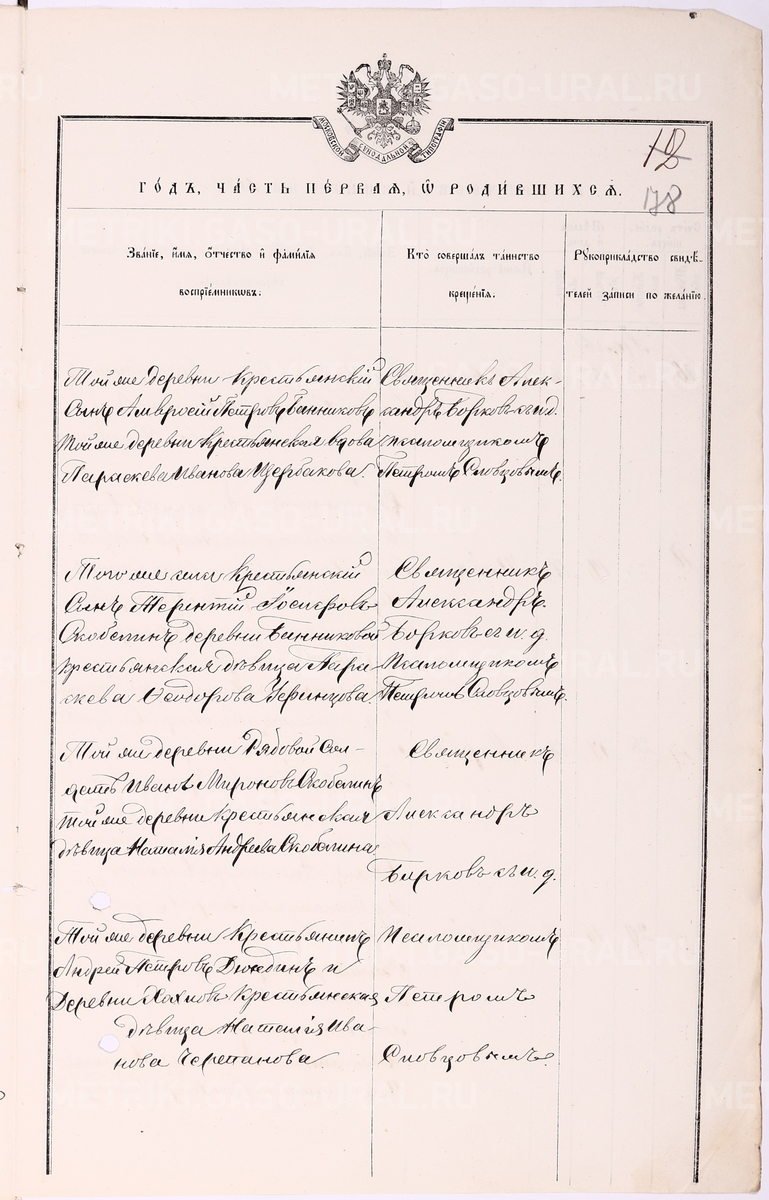 МОСКОВСКОЙ СѴНОДАЛЬНОЙ ТИПОГРАФІИ
12
178
ГО́ДЪ, ЧА́СТЬ ПЕ́РВАЯ, Ѡ҆ РОДИ́ВШИХСѦ.
Зва́нїе, и҆́мя, ѻ҆́тчество и҆ фами́лїя
воспрїе́мникѡвъ.
Кто̀ соверша́лъ та́инство
креще́нїя.
Рꙋкоприкла́дство свидѣ́-
телей за́писи по жела́нїю.
Той же деревни крестьянскій
сынъ Амвросій Петровъ Банниковъ
той же деревни крестьянская вдова
Параскева Иванова Щербакова.
Священникъ Алек-
сандръ Борковъ съ и. д.
псаломщикомъ
Петромъ Словцовымъ.
Того же села крестьянскій
сынъ Терентій Іосифовъ
Скобелинъ деревни Банниковой
крестьянская дѣвица Пара-
скева Ѳеодорова
Священникъ
Александръ
Борковъ съ и. д.
Псаломщикомъ
Петромъ Словцовымъ.
Той же деревни Рядовой Сол-
датъ Иванъ Мироновъ Скобелинъ
той же деревни крестьянская
дѣвица Наталія Андреева Скобелина
Священникъ
Александръ
Борковъ съ и. д.
Той же деревни Крестьянинъ
Андрей Петровъ Дюндинъ и
Деревни крестьянская
дѣвица Наталія Ива-
нова Черепанова.
Псаломщикомъ
Петромъ
Словцовымъ.